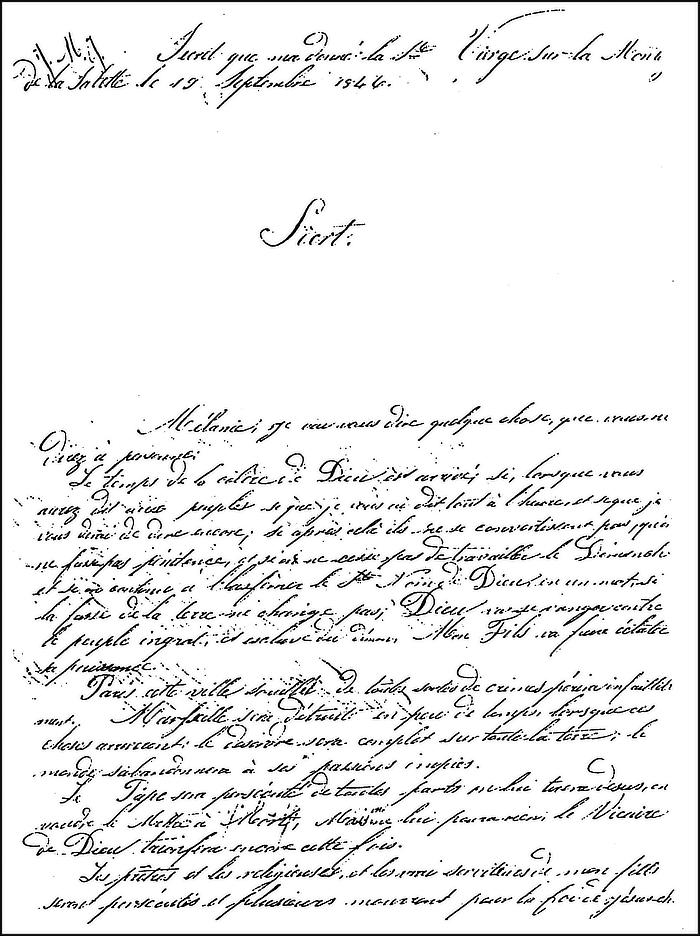 J. M. J.
Secret que ma donné la Ste Vierge sur la Mont
de la Salette le 19 Septembre 1846.
Secret.
Mélanie, je vais vous dire quelque chose, que vous ne
direz à personne:
Le temps de la colère de Dieu est arrivé; si, lorsque vous
aurez dit aux peuples ce que je vous ai dit tout à l'heure, et ce que je
vous dirai de dire encore; si après cela ils ne se convertissent pas, qu'on
ne fasse pas pénitence, et si on ne cesse pas de travailler le Dimanche
et si on continue à blasfémer le St Nom de Dieu, en un mot, si
la fasse de la terre ne change pas, Dieu va se vanger contre
le peuple ingrat, et esclave du démon, Mon Fils va faire éclater
sa puissance
Paris cette ville souillée de toutes sortes de crimes périra infaillible
ment, Marseille sera détruite en peu de temps, lorsque ces
choses arriveront: le désordre sera complet sur toute la terre; le
monde s'abandonnera à ses passions impies.
Le Pape sera persécuté de toutes parts on lui tirera dessus, on
voudra le mettre à Mort, Mais on lui pourra rien, le Vicaire
de Dieu trionfera encore cette fois.
Les prêtres et les religieuses, et les vrai serviteurs de mon fils
seront persécutés et plusieurs mourront pour la foi de Jésus-ch.